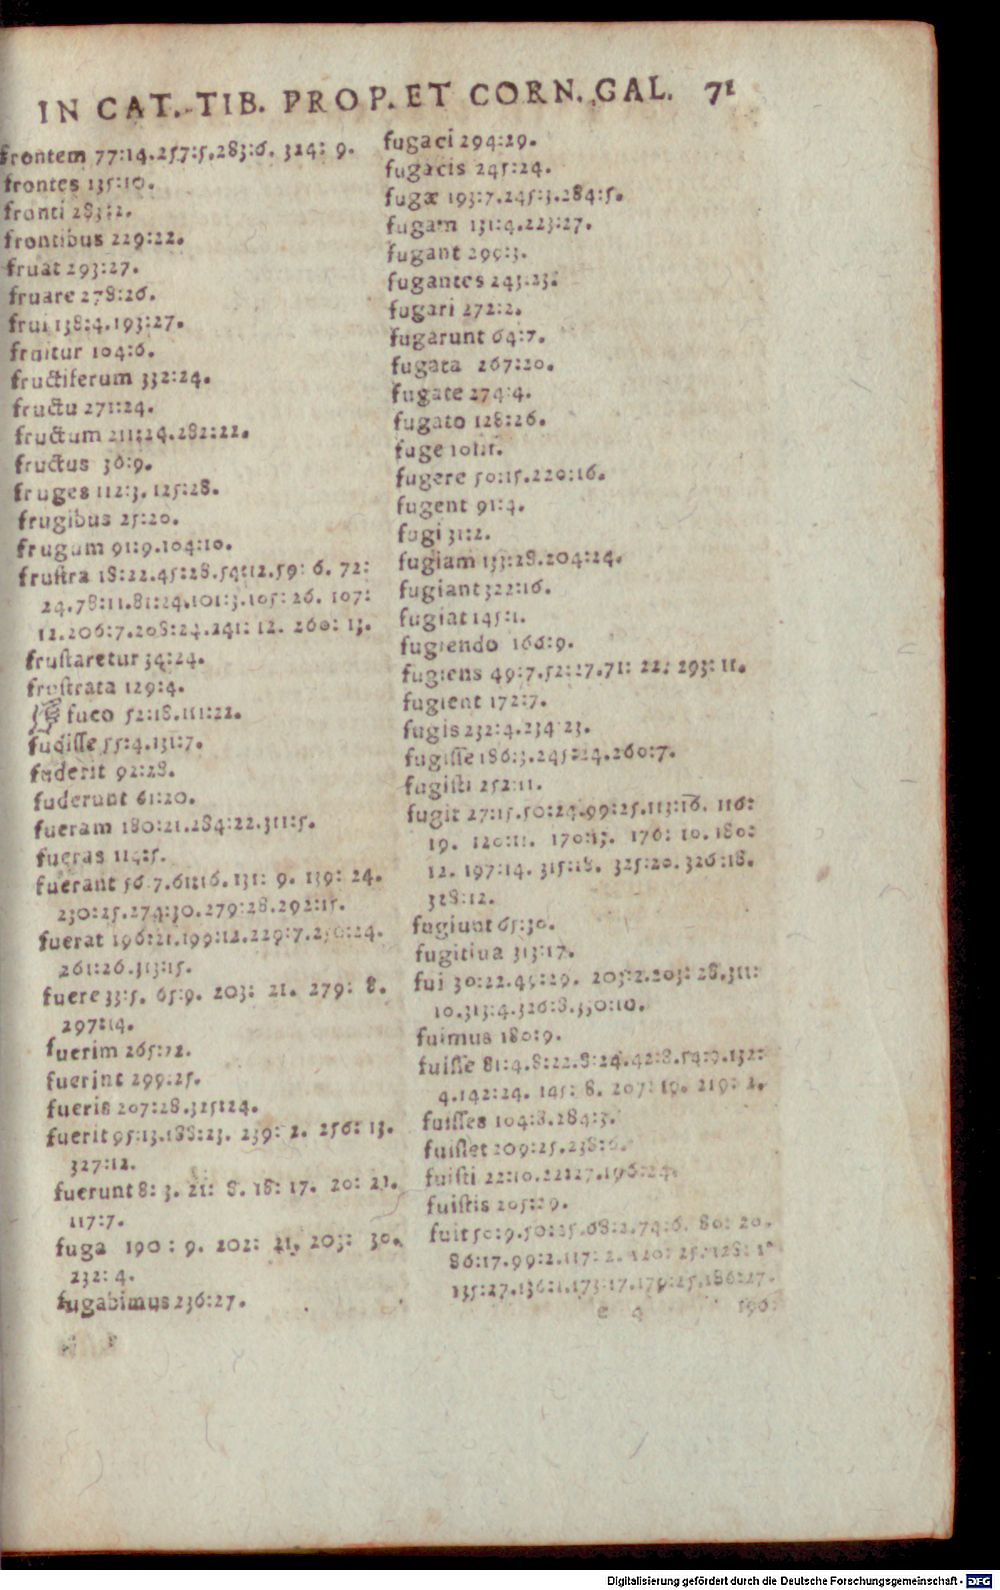 IN CAT. TIB. PROP. ET CORN. GAL. 71
frontem 77:14.257:5.283:6. 324: 9.
frontes 135:10.
fronti 283:2.
frontibus 229:22.
fruat 293:27.
fruare 278:26.
frui 138:4.193:27.
fruitur 104:6.
fructiferum 332:24.
fructu 271:24.
fructum 211:24.282:22.
fructus 36:9.
fruges 112:3. 125:28.
frugibus 25:20.
frugum 91:9.104:10.
frustra 18:22.45:28.54:12.59: 6. 72:
24.78:11.81:24.101:3.105: 26. 107:
12.206:7.208:24.241: 12. 260: 13.
frustaretur 34:24.
frustrata 129:4.
fuco 52:18.111:22.
fudisse 55:4.131:7.
fuderit 92:28.
fuderunt 61:20.
fueram 180:21.284:22.311:5.
fueras 114:5.
fuerant 56 7.61:16. 131: 9. 139: 24.
230:25.274:30.279:28.292:15.
fuerat 196:21.199:12.229:7.250:24.
261:26.313:15.
fuere 33:5. 65:9. 203: 21. 279: 8.
297:14.
fuerim 265:12.
fuerint 299:25.
fueris 207:28.325:24.
fuerit 95:13.188:23. 239: 2. 256: 13.
327:12.
fuerunt 8: 3. 21: 8. 18: 17. 20: 21.
117:7.
fuga 190: 9. 202: 21. 203: 30.
232: 4.
fugabimus 236:27.
fugaci 294:29.
fugacis 245:24.
fugæ 193:7.245:3.284:5.
fugam 131:4.223:27.
fugant 299:3.
fugantes 243:23.
fugari 272:2.
fugarunt 64:7.
fugata 267:20.
fugate 274:4.
fugato 128:26.
fuge
fugere 50:15.220:16.
fugent 91:4.
fugi 31:2.
fugiam 133:28.204:24.
fugiant 322:16.
fugiat 145:1.
fugiendo 166:9.
fugiens 49:7.52:27.71: 22. 293: 11.
fugient 172:7.
fugis 232:4.234 23.
fugisse 186:3.245:24.260:7.
fugisti 252:11.
fugit 27:15.50:24.99:25.113:16. 116:
19. 120:11. 170:13. 176: 10. 180:
12. 197:14. 315:18. 325:20. 326:18.
328:12.
fugiunt 65:30.
fugitiua 313:17.
fui 30:22.49:29. 205:2.203: 28.311:
10.313:4.326:8.330:10.
fuimus 180:9.
fuisse 81:4.8:22.8:24.42:8.54:9.132:
4.142:24. 145: 8. 207: 19. 219: 2.
fuisses 104:8.284:3.
fuisset 209:25.238:6.
fuisti 22:10.22:27.196:24.
fuistis 205:29.
fuit 50:9.50:25.68:2.74:6. 80: 20.
86:17.99:2.117: 2. 120: 25. 128:
135:27.136:1.173:17.179:25.186:27.
e 4 196:
Digitalisierung gefördert durch die Deutsche Forschungsgemeinschaft - DFG